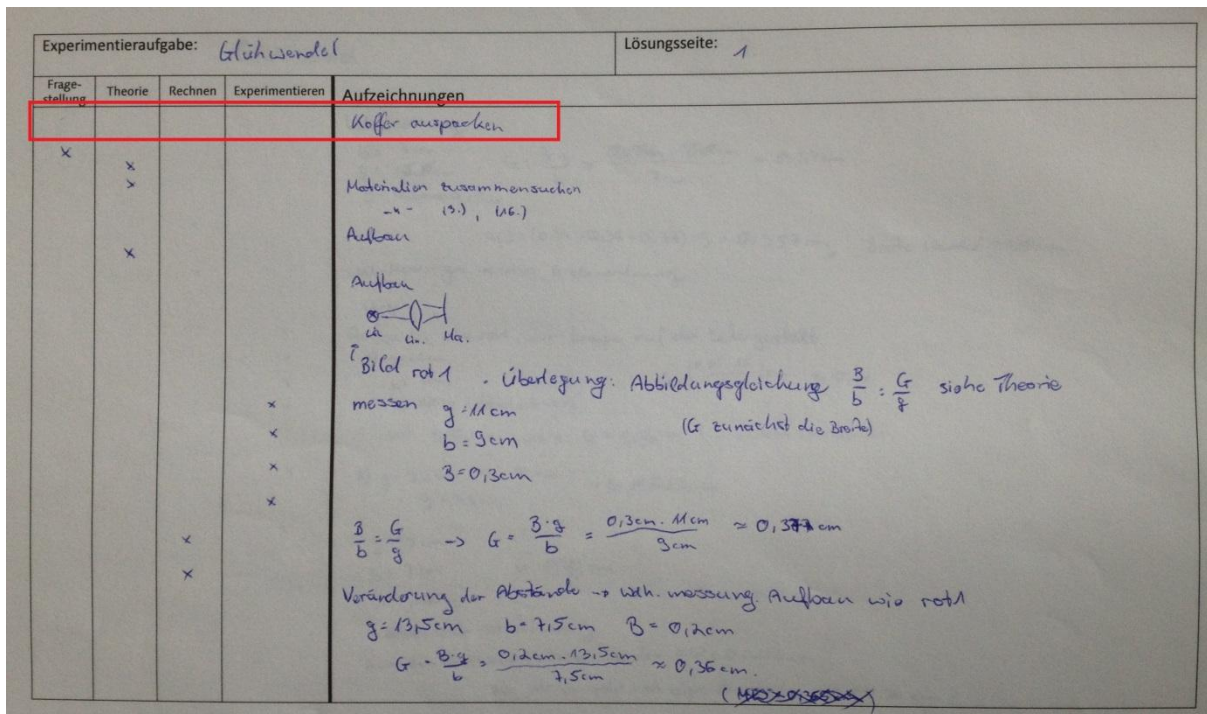 Experimentieraufgabe: Glühwendel
Lösungsseite: 1
Frage-
stellung
Theorie
Rechnen
Experimentieren
Aufzeichnungen
Koffer auspacken
x
x
x Materialien zusammensuchen
-"- (3.), (16.)
Aufbau
x
Aufbau
Li. Lin. Ma.
Bild rot 1 . Überlegung: Abbildungsgleichung B/b = G/g siehe Theorie
x messen g = 11cm (G zunächst die Breite)
x b = 9cm
x B = 0,3cm
x
B/b = G/g -> G = B·g/b = 0,3cm · 11cm/9cm ≈ 0,37 cm
x
x
Veränderung der Abstände -> wdh. messung. Aufbau wie rot1
g = 13,5cm b = 7,5cm B = 0,2cm
G = B·g/b = 0,2cm · 13,5cm/7,5cm ≈ 0,36cm.